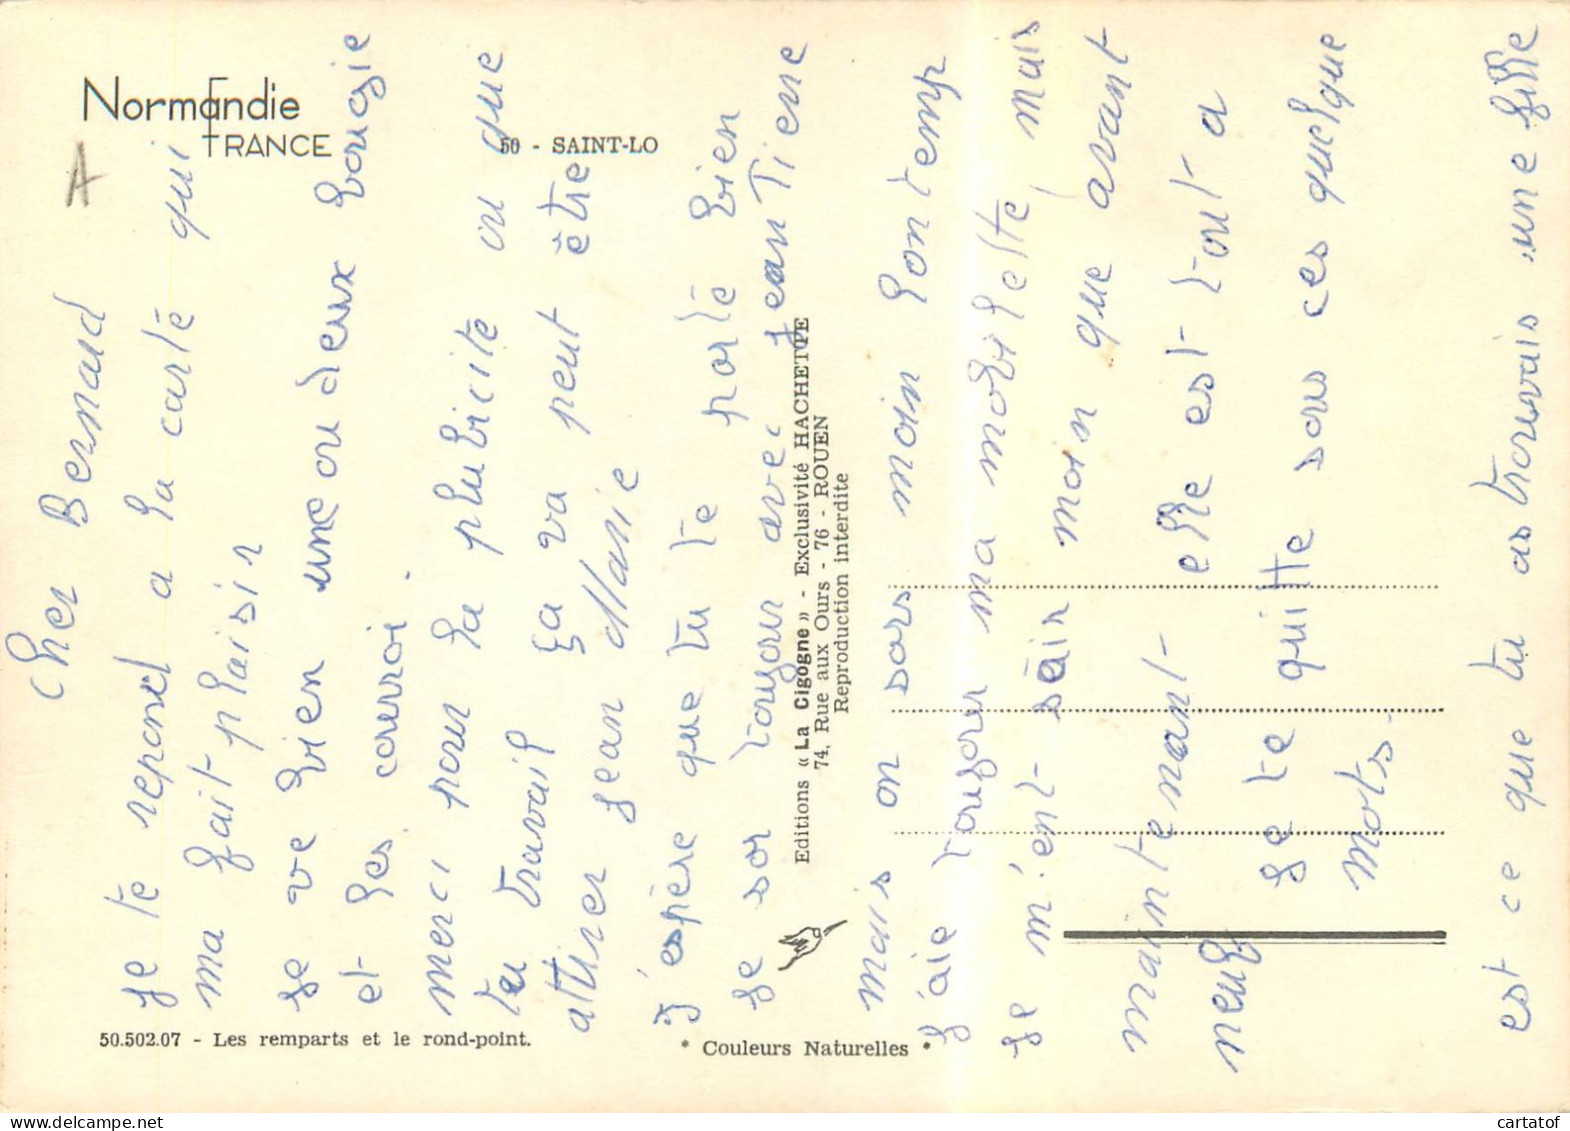 Normandie
FRANCE
50 - SAINT-LO
A
Cher Bernard
Je te repond a la carte qui
ma fait plaisir
Je ve bien une ou deux bougie
et les courroi.
merci pour la plubicite ou que
tu travail ça va peut être
attirer Jean Marie
J'espère que tu te porte bien
Je sor toujour avec jean Tiene
mais on sors moin lontemp
J'aie toujour ma mobilette mais
Je m'ent sain moin que avant
maintenant elle est tout a
neuf
Je te quitte sous ces quelque
mots.
est ce que tu as trouvais une fille
Editions « La Cigogne » - Exclusivité HACHETTE
74, Rue aux Ours - 76 - ROUEN
Reproduction interdite
50.502.07 - Les remparts et le rond-point.
* Couleurs Naturelles *
cartatof